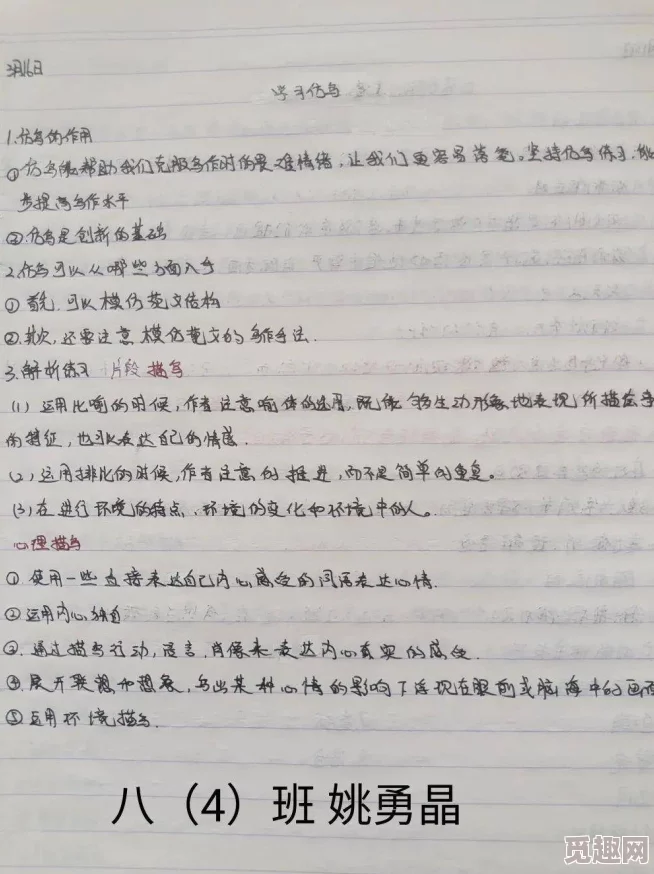 3月16日
学习仿写
1.仿写的作用
①仿写能帮助我们克服写作时的畏难情绪，让我们更容易落笔。坚持仿写练习，能
步提高写作水平
②仿写是创新的基础
2.仿写可以从哪些方面入手
①首先，可以模仿范文结构
②其次，还要注意模仿范文的写作手法.
3.解析练习 片段描写
(1)运用比喻的时候，作者注意喻体的选用，既能够生动形象地表现所描在
的特征，也可以表达自己的情感.
(2)运用排比的时候，作者注意的推进，而不是简单的重复。
(3)在进行环境的特点，环境的变化和环境中的人。
心理描写
①使用一些直接表达自己内心感受的词语表达心情.
②运用内心独白
③.通过描写行动，语言.肖像来表达内心真实的感受.
④展开联想和想象，写出某种心情的影响下浮现在眼前或脑海中的画面
⑤运用环境描写.
八（4）班 姚勇晶
觅趣网